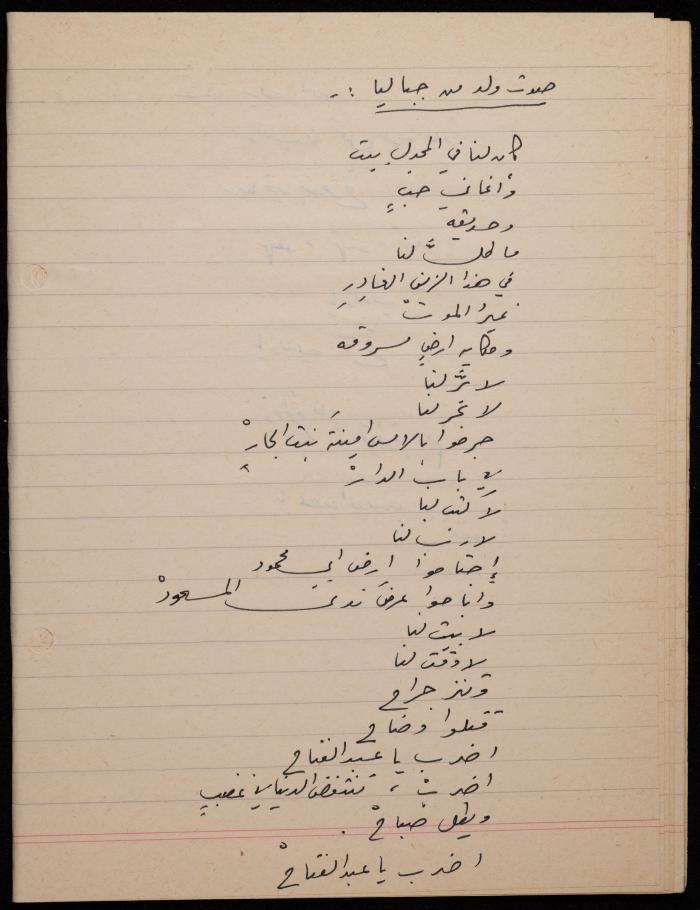 صوت ولد من جباليا :-
كان لنا في المجدل بيت
وأغاني حبٍ
وحديقه
ما ظلَّ لنا
في هذا الزمن الغادِرِ
غيرُ الموتْ
وحكايه ارضٍ مسروقه
لا بَرَّ لنا
لا بحر لنا
جرفوا بالامس امينةَ بنت الجارْ
في باب الدارْ
لا لنا
لا لنا
إجتاحوا ارض ابي محمود
وأباحوا عرضَ ندى المسعودْ
لا بيت لنا
لا وقت لنا
وتنز جراح
قتلوا وضاح
اضرب يا عبد الفتاح
اضربْ ، تنتفض الدنيا في غضبٍ
ويطل صباحْ .
اضرب يا عبد الفتاحْ